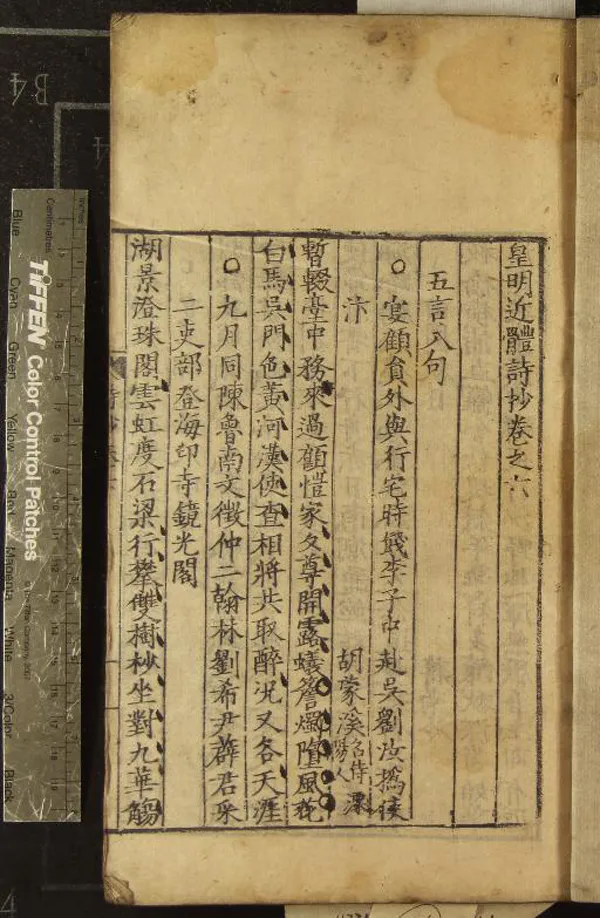 皇明近體詩抄卷之六
五言八句
○宴顧貟外與行宅時餞李子中赴吳劉汝撝使
汴
胡蒙溪名侍
人
暫輟臺中務來過顧愷家夕尊開露蟻簷燭墮風花
白馬吳門色黃河漢使查相將共取醉况又各天涯
○九月同陳魯南文徵仲二翰林劉希尹薛君采
二吏部登海印寺鏡光閣
湖景澄珠閣雲虹度石梁行攀雙樹杪坐對九華觴
TIFFEN Color Control Patches
Centimetres
Blue
Cyan
Green
Yellow
Red
Magenta
White
3/Color
Black
B4
4